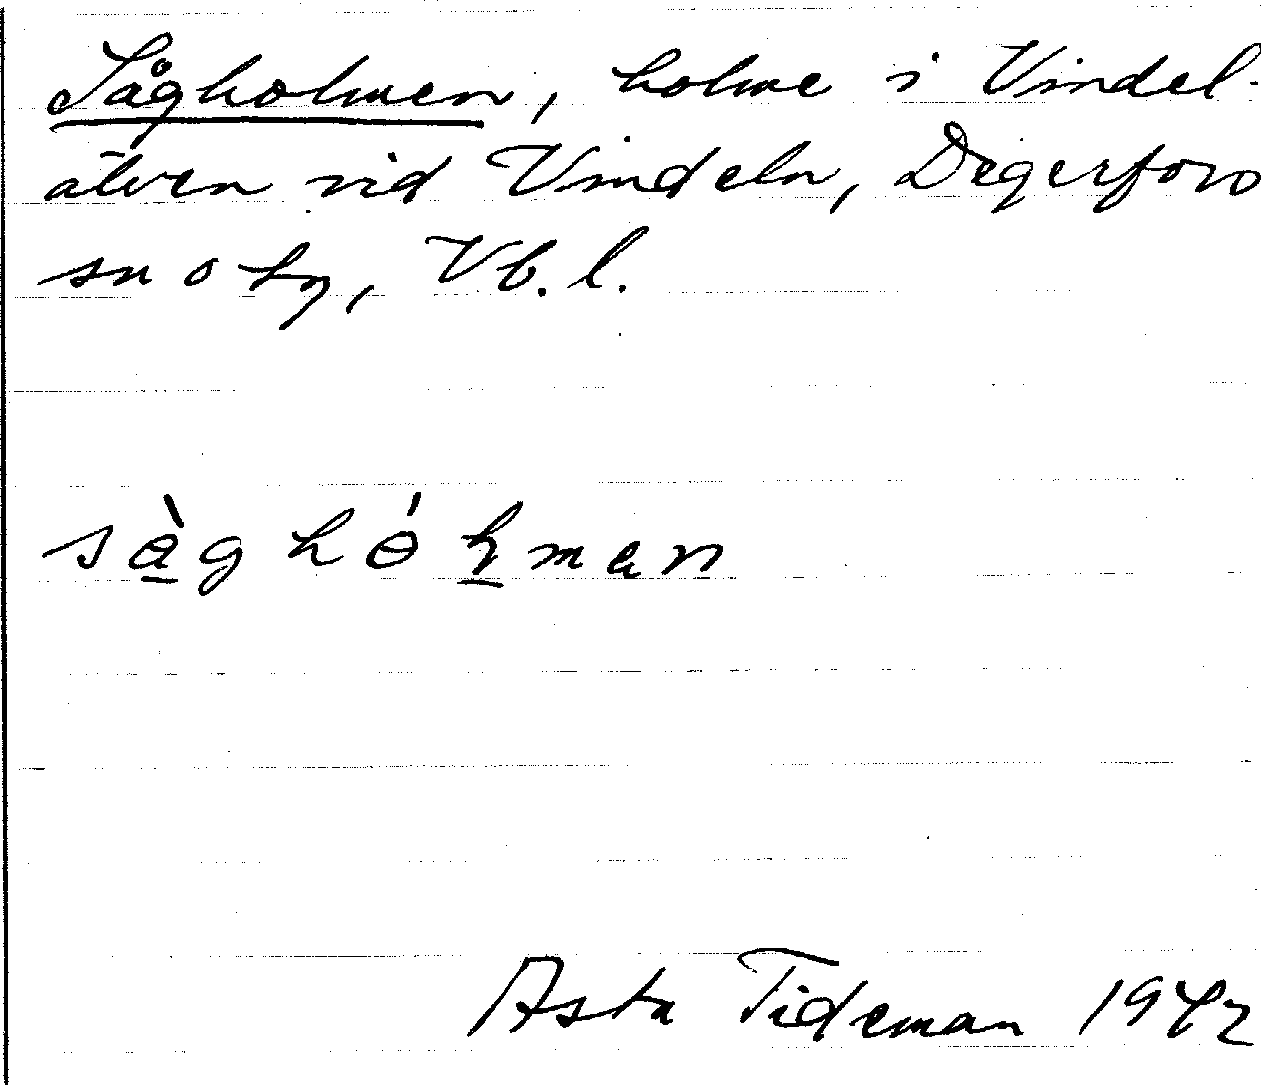 Sågholmen, holme i Vindel-
älven vid Vindeln, Degerfors
sn o tg, Vb. l.
Asta Tideman 1942